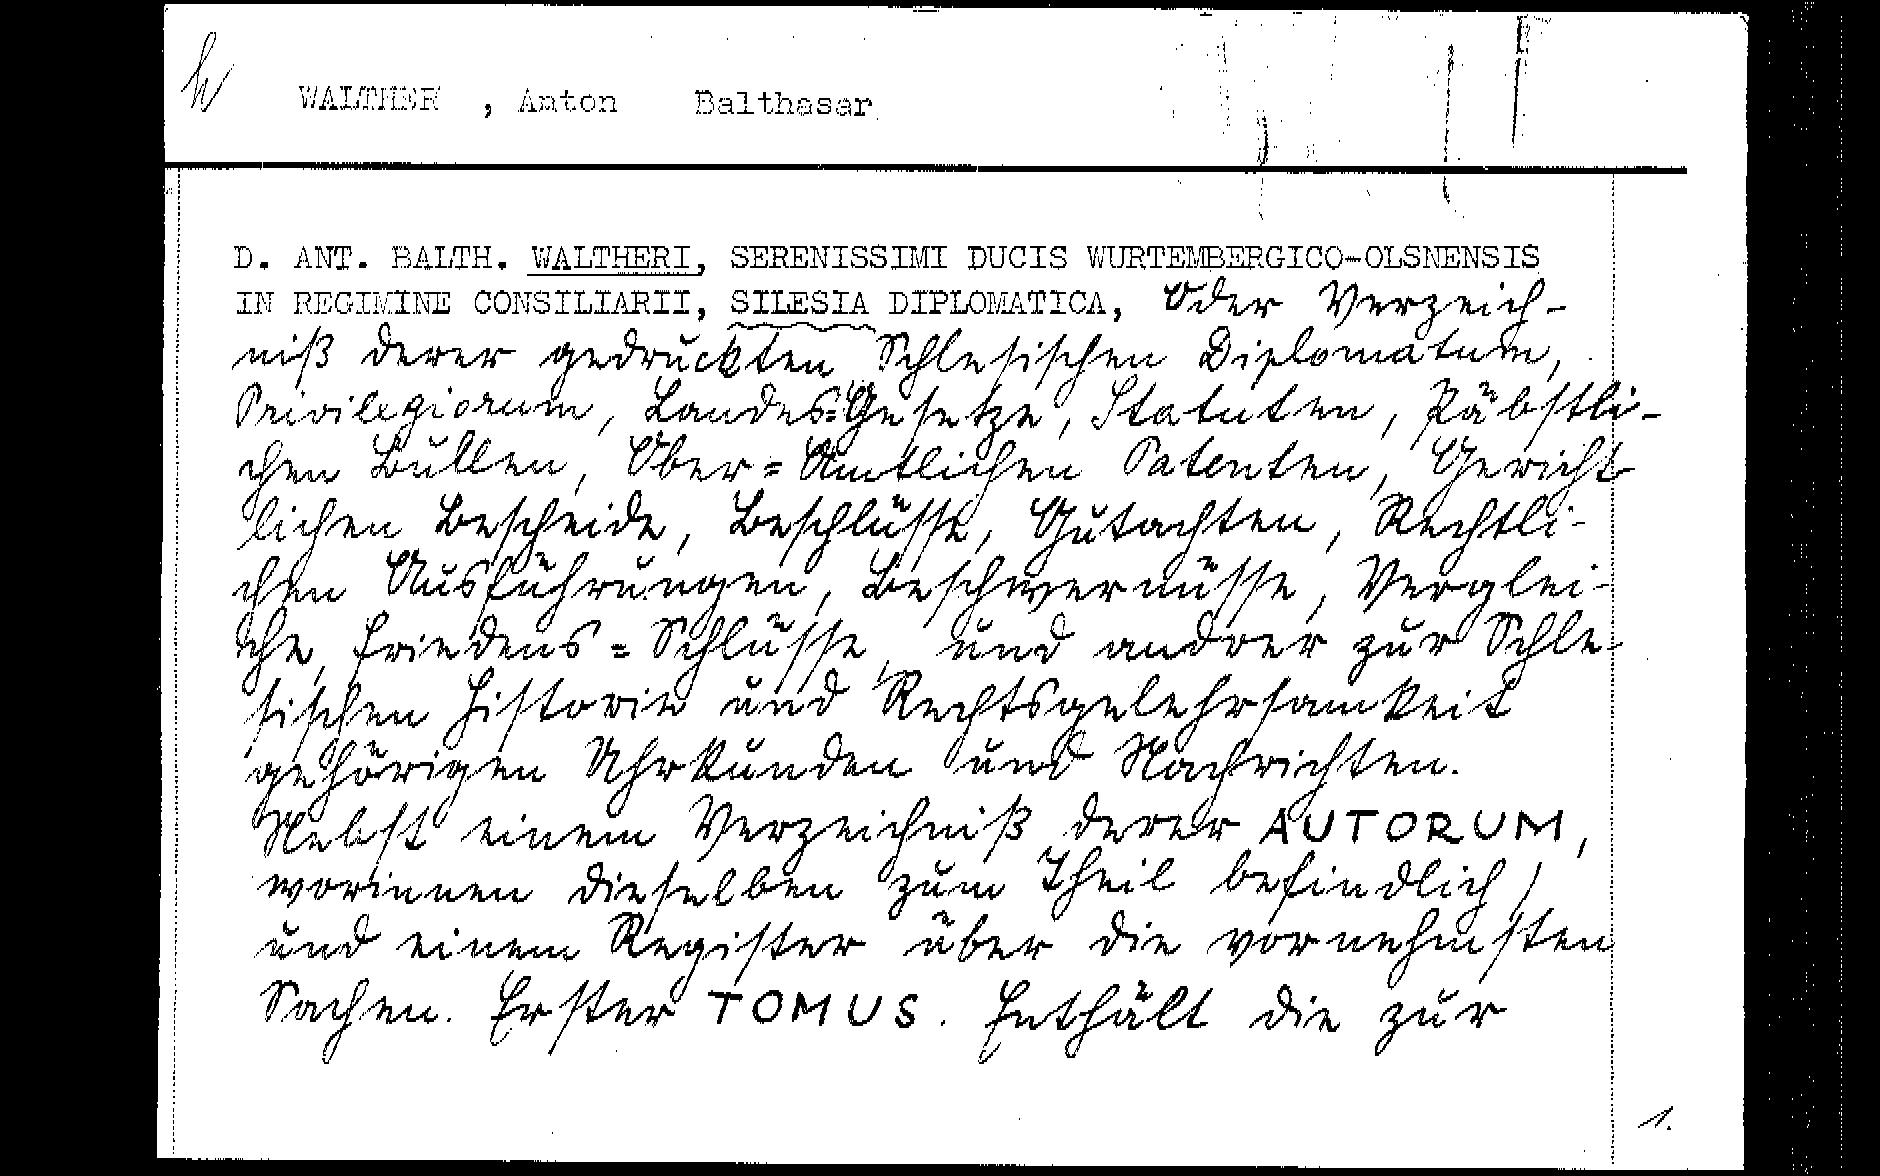 h
WALTHER , Anton Balthasar
D. ANT. BALTH. WALTHERI, SERENISSIMI DUCIS WURTEMBERGICO-OLSNENSIS
IN REGIMINE CONSILIARII, SILESIA DIPLOMATICA, Oder Verzeich-
niß derer gedruckten Schlesischen Diplomatum,
Privilegiorum, Landes=Gesetze, Statuten, Päbstli-
chen Bullen, Ober=Amtlichen Patenten, Gericht-
lichen Bescheide, Beschlüsse, Gutachten, Rechtli-
chen Ausführungen, Beschwernüsse, Verglei-
che, Friedens=Schlüsse, und andrer zur Schle-
sischen Historie und Rechtsgelehrsamkeit
gehörigen Uhrkunden und Nachrichten.
Nebst einem Verzeichniß derer AUTORUM,
worinnen dieselben zum Theil befindlich /
und einem Register über die vornehmsten
Sachen. Erster TOMUS. Enthält die zur
1.